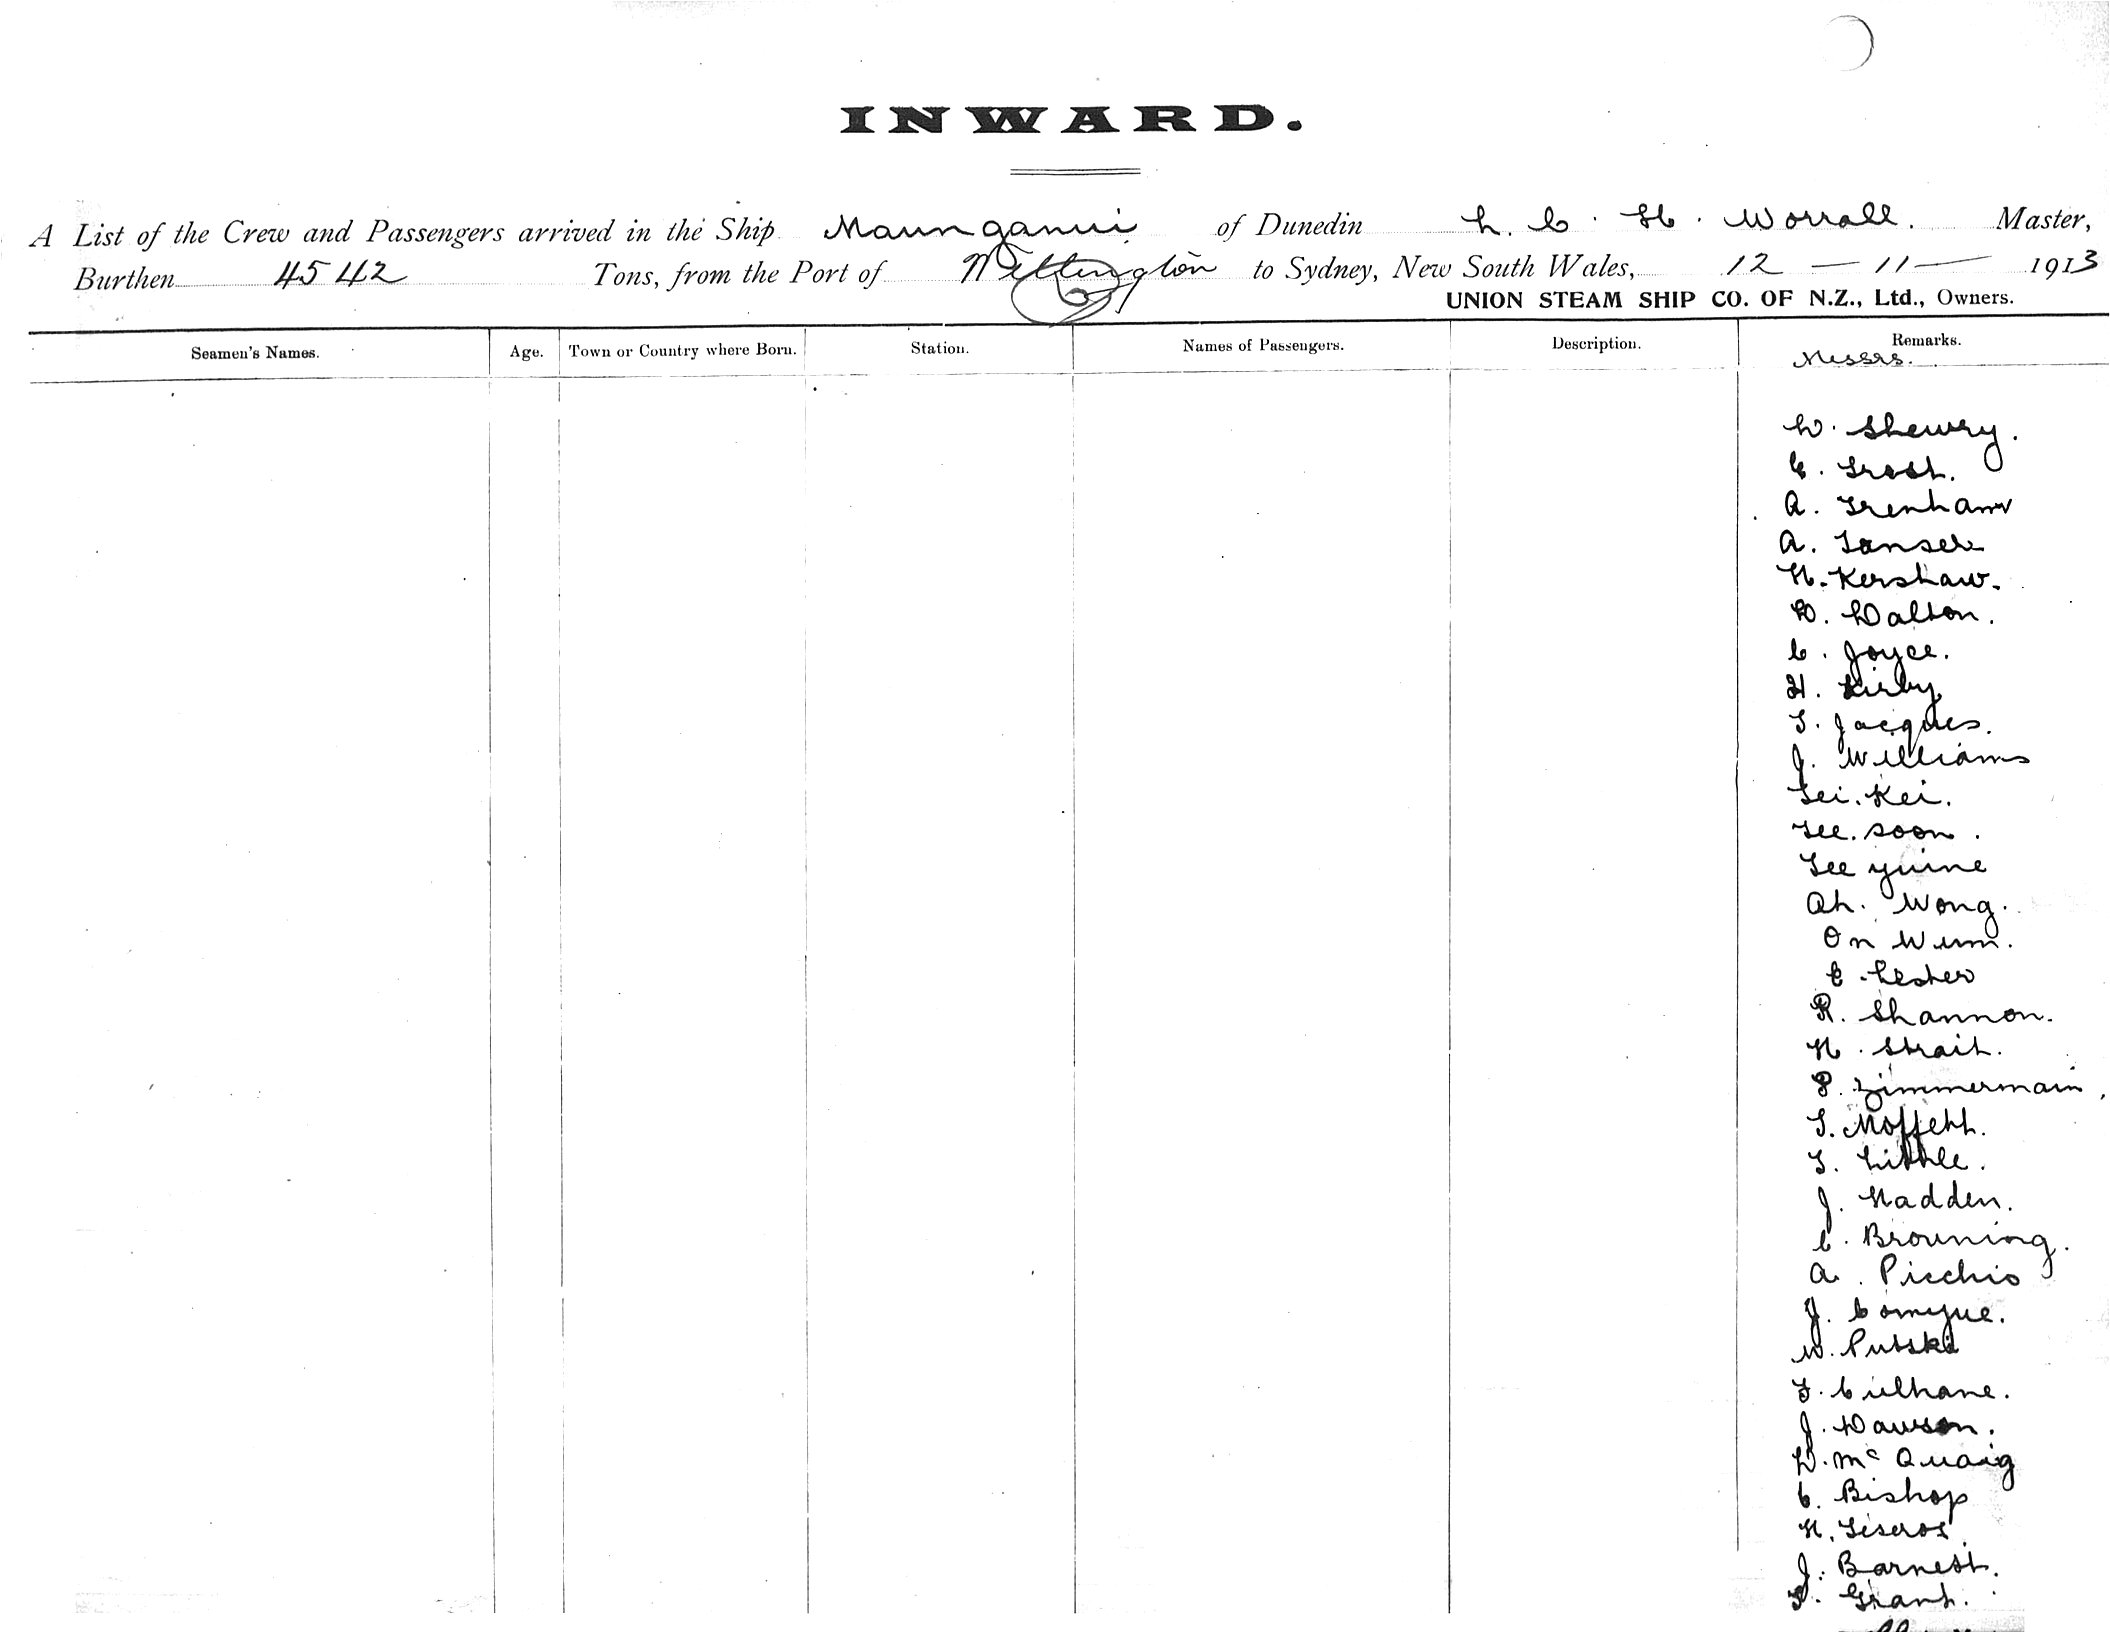 INWARD.
A List of the Crew and Passengers arrived in the Ship Maunganui of Dunedin L. C. H. Worrall. Master,
Burthen 4542 Tons, from the Port of Wellington to Sydney, New South Wales, 12 — 11 — 1913
UNION STEAM SHIP CO. OF N.Z., Ltd., Owners.
Seamen's Names. Age. Town or Country where Born. Station. Names of Passengers. Description. Remarks.
Messrs.
W. Shewry.
C. Trost.
A. Trenham
A.
H. Kershaw.
D. Dalton.
C. Joyce.
H. Kirby
T. Jacques.
J. Williams
Lei. Kei.
Lee. Soon.
Lee yuine
Ah. Wong.
On Wum.
C. Lester
R. Shannon.
H. Strait.
P. Zimmermain.
T. Moffett.
T. Little.
J. Hadden.
C. Browning.
A. Picchio
J.
W. Putski
T. Culhane.
J. Dawson.
D. McQuaig
C. Bishop
H.
J. Barnest.
Grant.